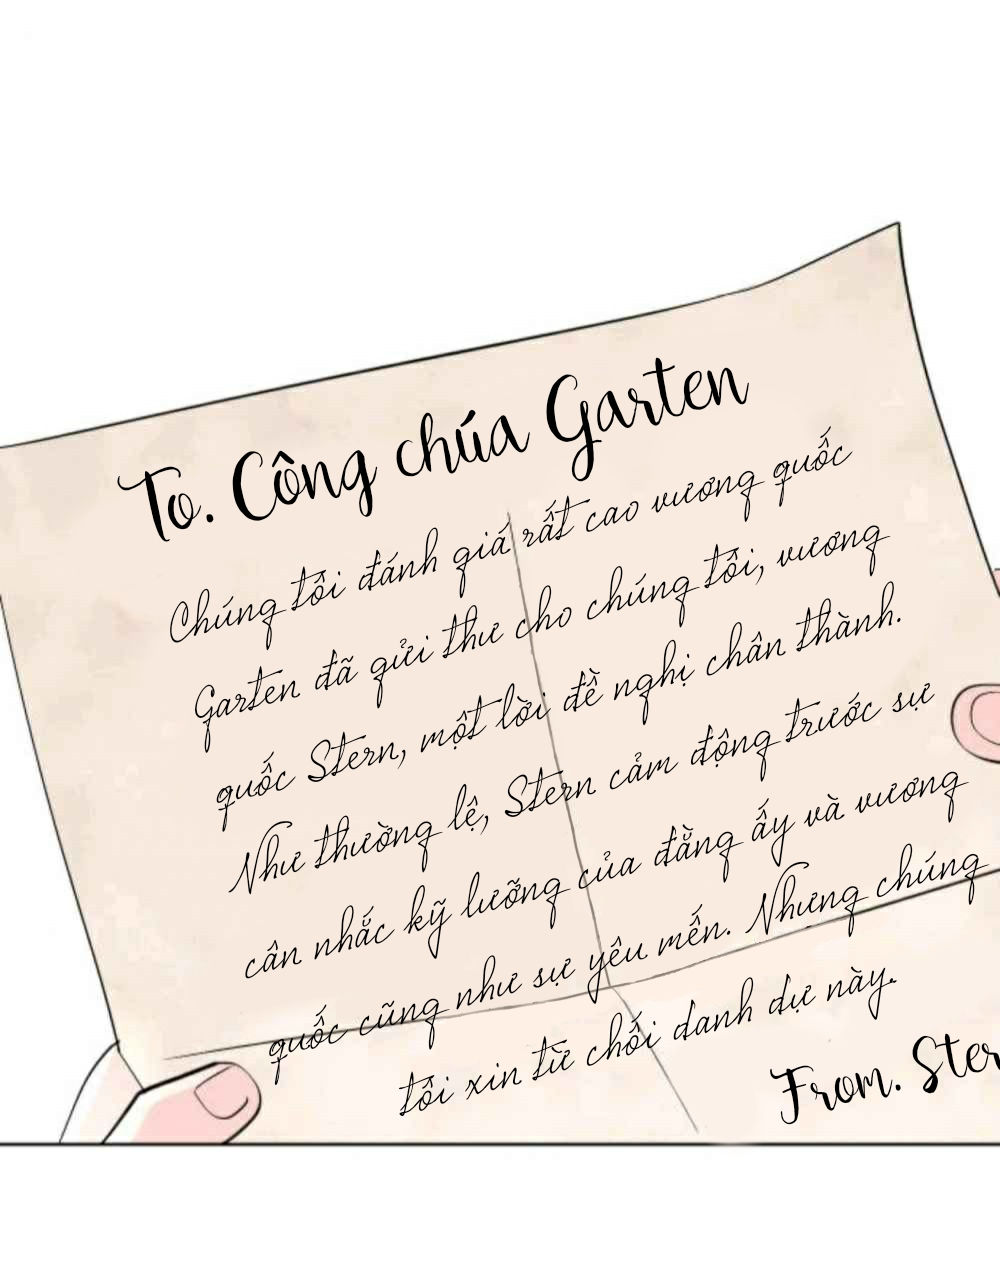 To. Công chúa Garten
Chúng tôi đánh giá rất cao vương quốc
Garten đã gửi thư cho chúng tôi, vương
quốc Stern, một lời đề nghị chân thành.
Như thường lệ, Stern cảm động trước sự
cân nhắc kỹ lưỡng của đằng ấy và vương
quốc cũng như sự yêu mến. Nhưng chúng
tôi xin từ chối danh dự này.
From. Ster